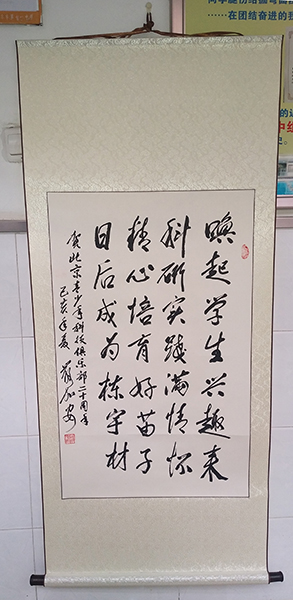 唤起学生兴趣来
科研实践满情怀
精心培育好苗子
日后成为栋宇材
贺北京青少年科技俱乐部二十周年
己亥年夏
……在团结奋进的我